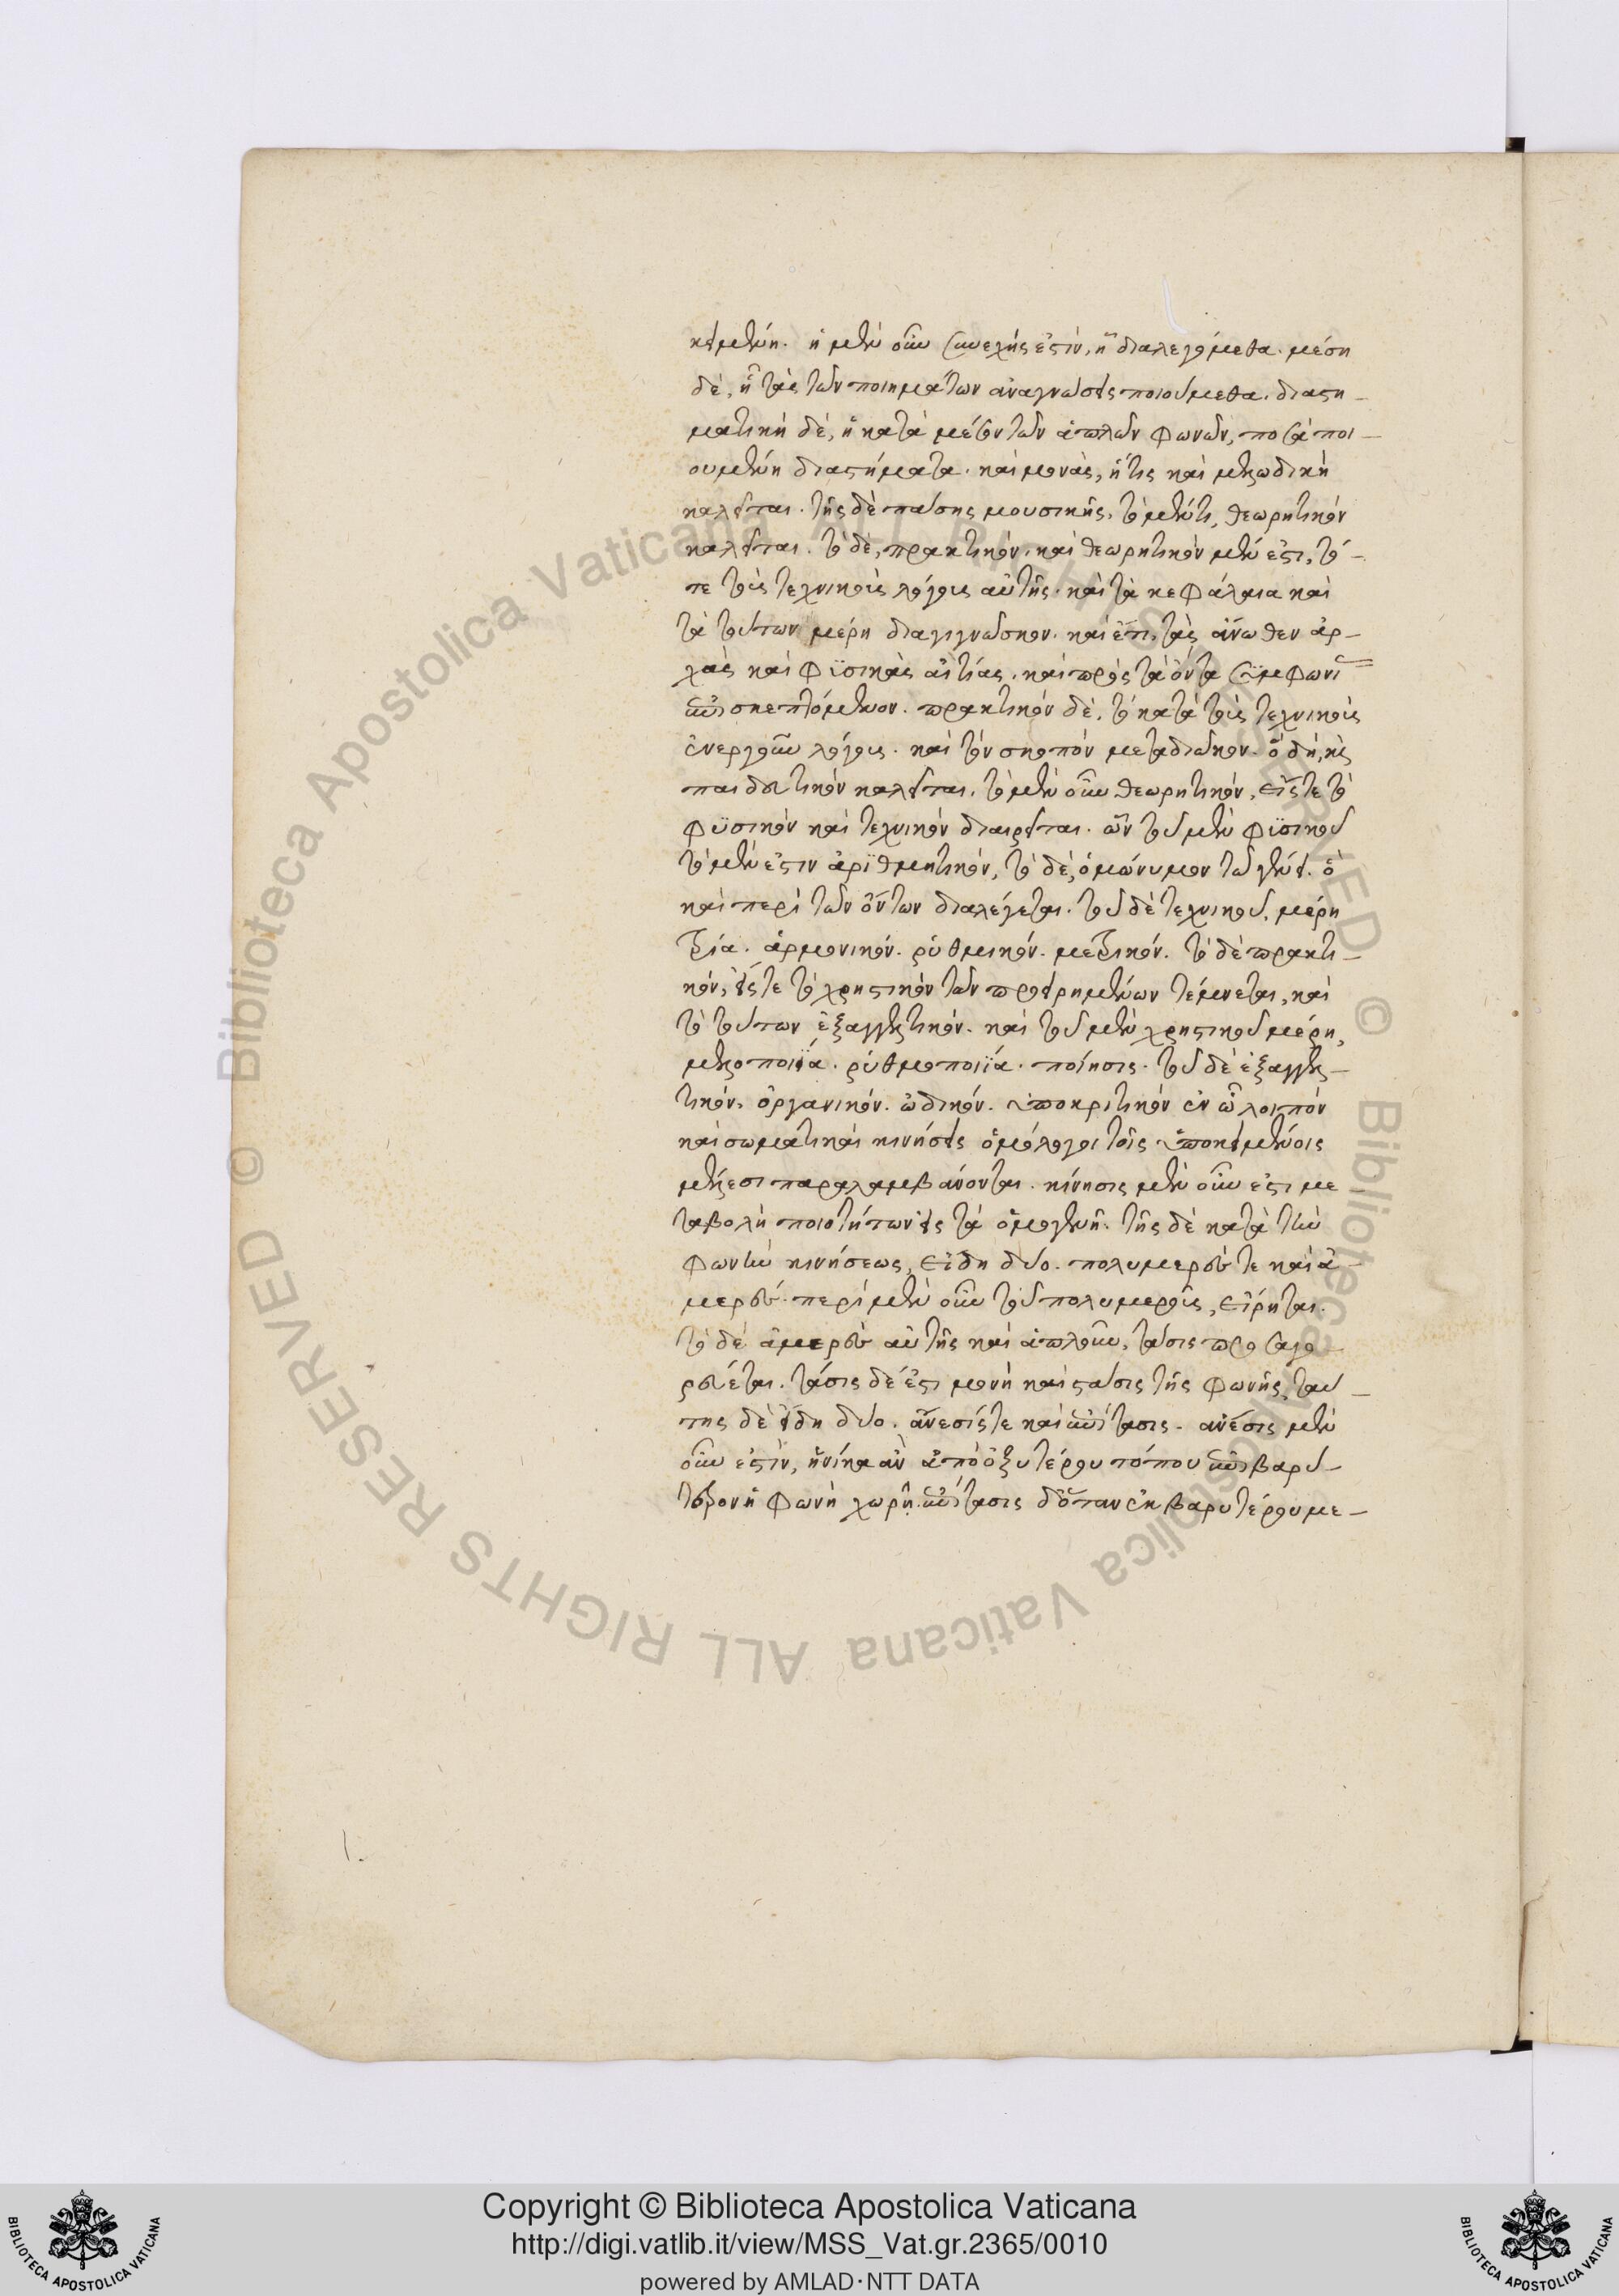 κειμένη. ἡ μὲν οὖν συνεχής ἐστιν, ᾗ διαλεγόμεθα. μέση
δὲ, ᾗ τὰς τῶν ποιημάτων ἀναγνώσεις ποιούμεθα. διαστη-
ματικὴ δὲ, ἡ κατὰ μέσον τῶν ἁπλῶν φωνῶν, ποσὰ ποι-
ουμένη διαστήματα. καὶ μονὰς, ἥτις καὶ μελῳδικὴ
καλεῖται. τῆς δὲ πάσης μουσικῆς, τὸ μέν τι, θεωρητικόν
καλεῖται. τὸ δὲ, πρακτικόν. καὶ θεωρητικὸν μέν ἐστι, τό-
τε τοὺς τεχνικοὺς λόγους αὐτῆς. καὶ τὰ κεφάλαια καὶ
τὰ τούτων μέρη διαγιγνώσκον. καὶ ἔτι, τὰς ἄνωθεν ἀρ-
χὰς καὶ φϋσικὰς αἰτίας. καὶ πρὸς τὰ ὄντα συμφωνί
ἐπισκεπτόμενον. πρακτικὸν δὲ, τὸ κατὰ τοὺς τεχνικοὺς
ἐνεργοῦν λόγους. καὶ τὸν σκοπὸν μεταδιῶκον. ὃ δὴ, κὶ
παιδευτικὸν καλεῖται. τὸ μὲν οὖν θεωρητικόν, εἴς τε τὸ
φϋσικὸν καὶ τεχνικὸν διαιρεῖται. ὧν τοῦ μὲν φϋσικοῦ
τὸ μέν ἐστιν ἀρϊθμητικόν, τὸ δὲ, ὁμώνυμον τῷ γένει. ὃ
καὶ περὶ τῶν ὄντων διαλέγεται. τοῦ δὲ τεχνικοῦ, μέρη
τρία. ἁρμονικόν. ῥυθμικόν. μετρικόν. τὸ δὲ πρακτι-
κόν, εἴς τε τὸ χρηστικὸν τῶν προειρημένων τέμνεται, καὶ
τὸ τούτων ἐξαγγελτικόν. καὶ τοῦ μὲν χρηστικοῦ μέρη,
μελοποιΐα. ῥυθμοποιΐα. ποίησις. τοῦ δὲ ἐξαγγελ-
τικόν, ὀργανικόν. ᾠδικόν. ὑποκριτικόν ἐν ᾧ λοιπὸν
καὶ σωματικαὶ κινήσεις ὁμόλογοι τοῖς ὑποκειμένοις
μέλεσι παραλαμβάνονται. κίνησις μὲν οὖν ἐστι με
ταβολὴ ποιοτήτων εἰς τὰ ὁμογενῆ. τῆς δὲ κατὰ τὴν
φωνὴν κινήσεως, εἴδη δύο. πολυμερές τε καὶ ἀ-
μερές. περὶ μὲν οὖν τοῦ πολυμεροῦς, εἴρηται.
τὸ δὲ ἀμερὲς αὐτῆς καὶ ἁπλοῦν, τάσις προσαγο
ρεύεται. τάσις δέ ἐστι μονὴ καὶ στάσις τῆς φωνῆς, ταύ-
της δὲ εἴδη δύο. ἄνεσίς τε καὶ ἐπίτασις. ἄνεσις μὲν
οὖν ἐστϊν, ἡνίκα ἂν ἀπὸ ὀξυτέρου τόπου ἐπὶ βαρύ-
τερον ἡ φωνὴ χωρῇ. ἐπίτασις δ' ὅταν ἐκ βαρυτέρου με-
1.
Copyright © Biblioteca Apostolica Vaticana
http://digi.vatlib.it/view/MSS_Vat.gr.2365/0010
powered by AMLAD·NTT DATA
BIBLIOTECA APOSTOLICA VATICANA
BIBLIOTECA APOSTOLICA VATICANA
© Biblioteca Apostolica Vaticana ALL RIGHTS RESERVED
© Biblioteca Apostolica Vaticana ALL RIGHTS RESERVED